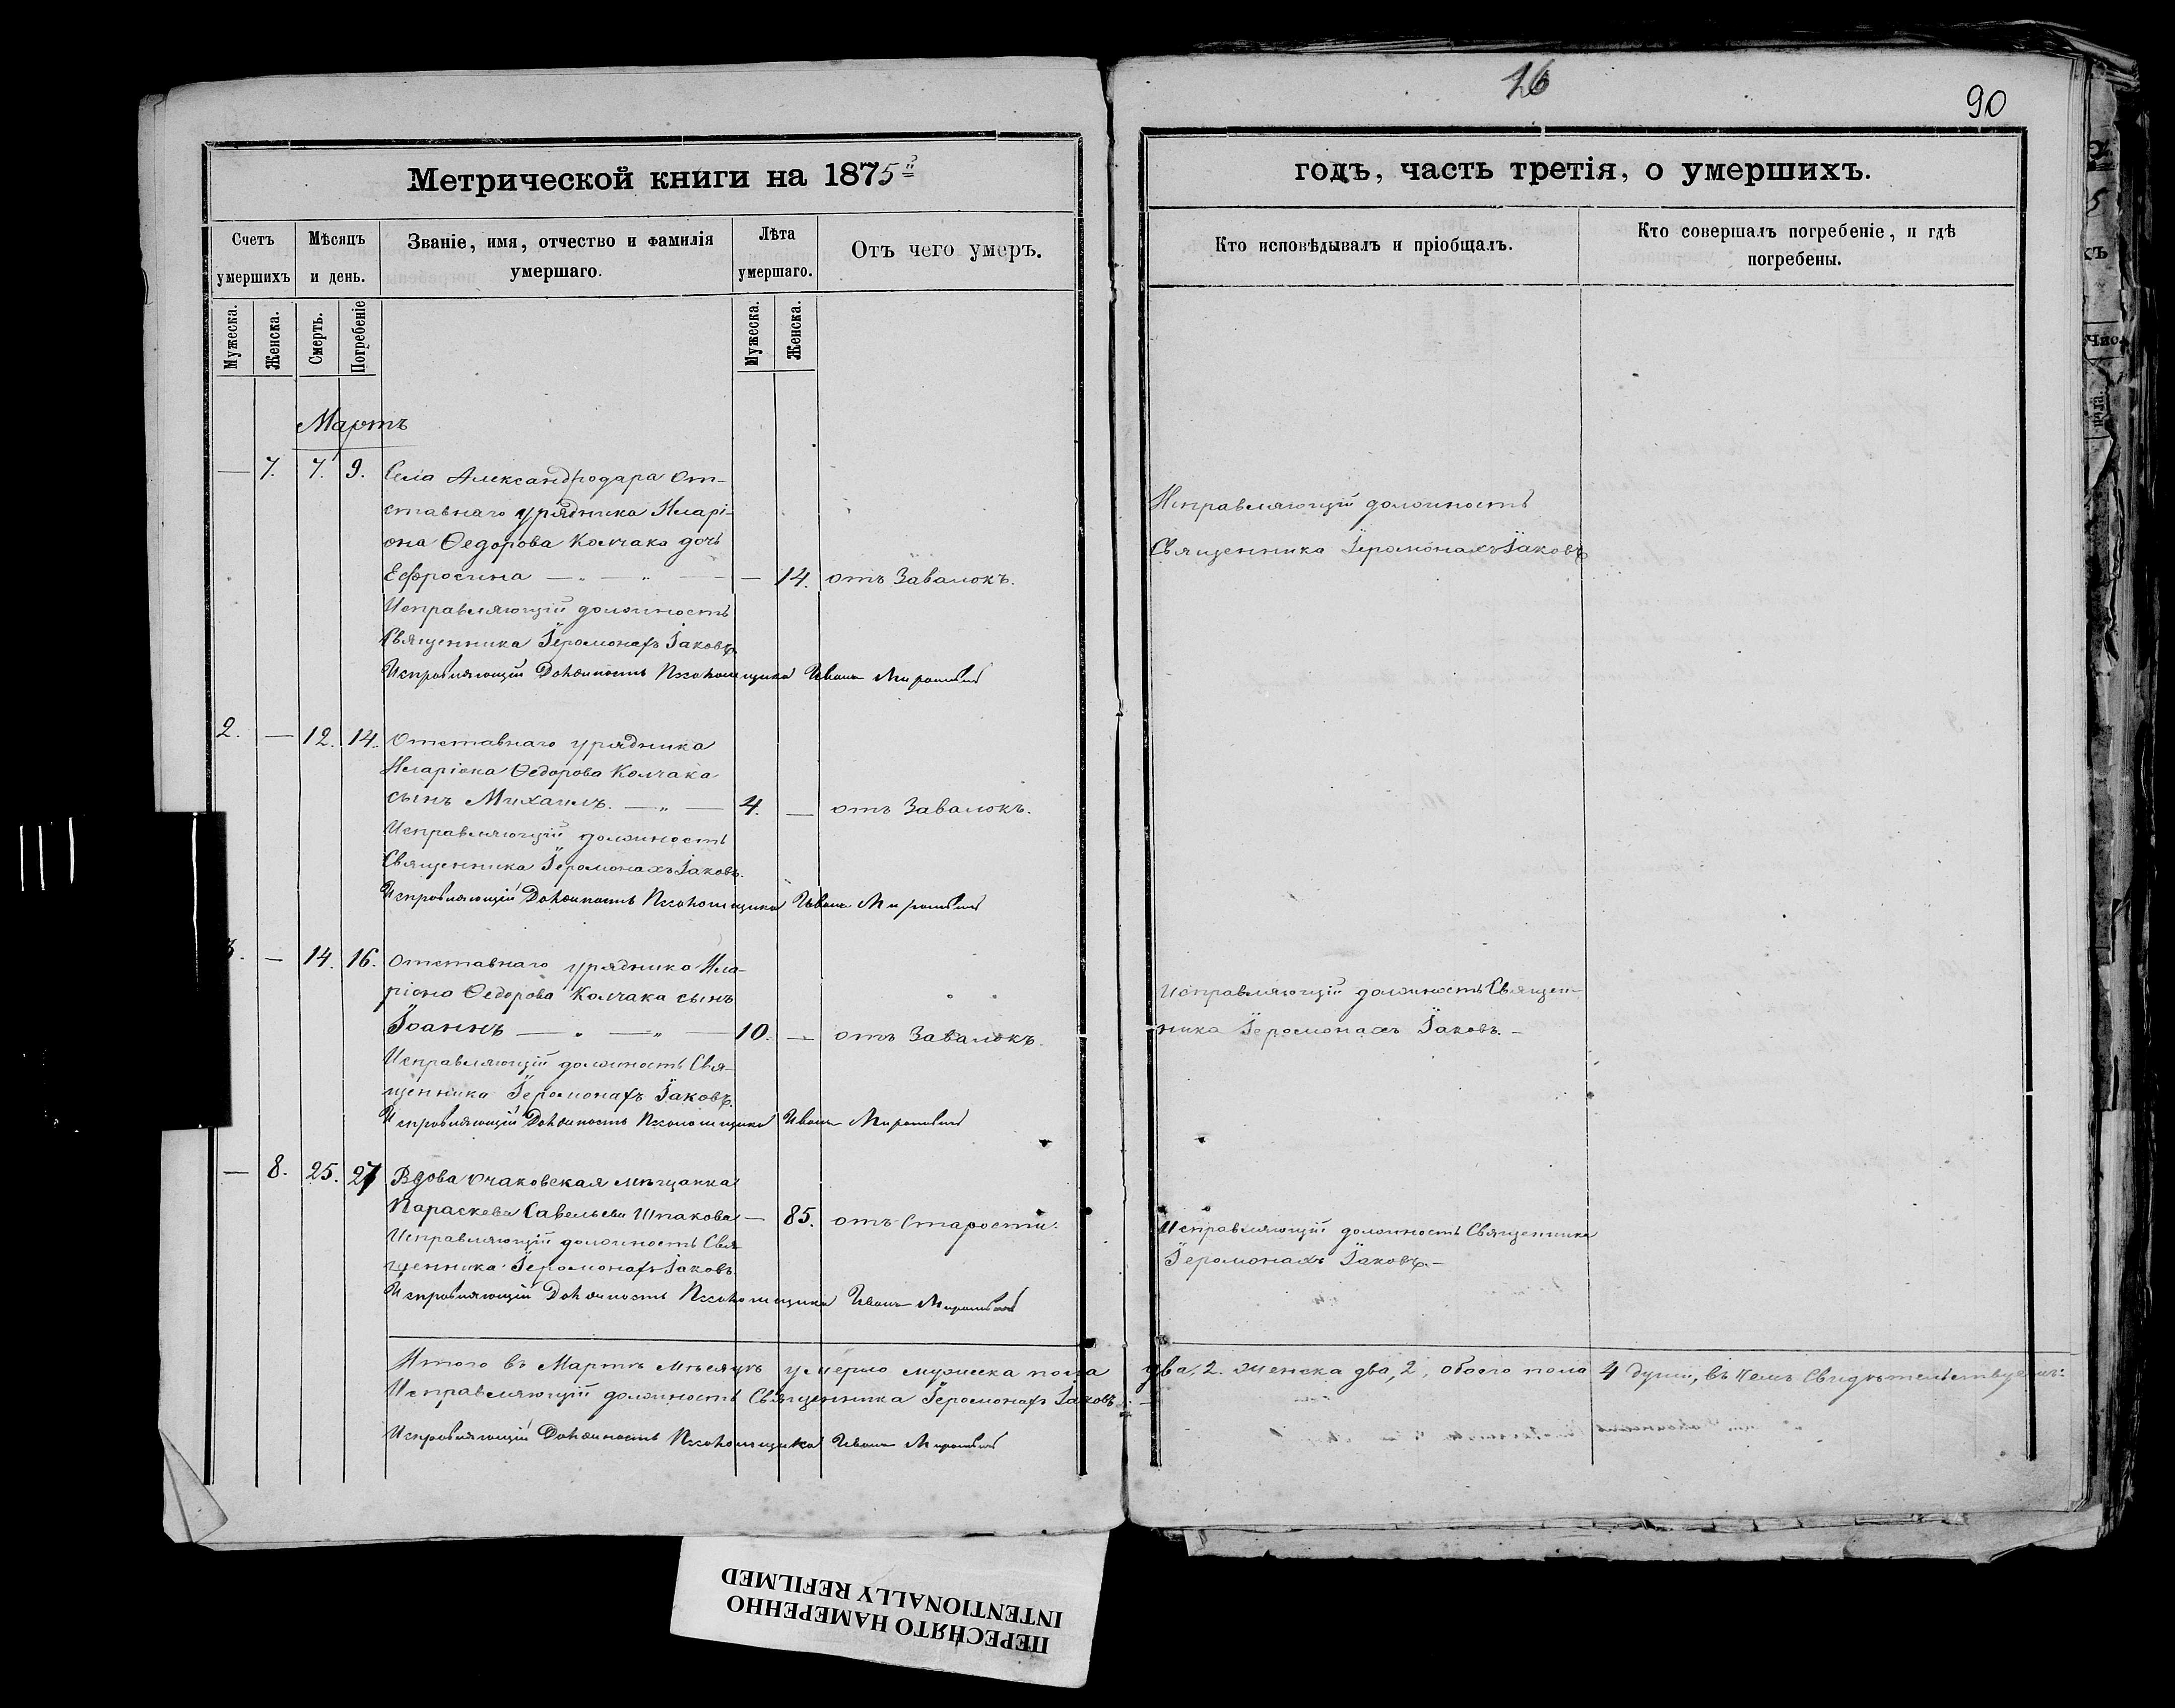 16
90
Метрической книги на 1875й
годъ, часть третія, о умершихъ.
Счетъ умершихъ
Мѣсяцъ и день.
Званіе, имя, отчество и фамилія умершаго.
Лѣта умершаго.
Отъ чего умеръ.
Кто исповѣдывалъ и пріобщалъ.
Кто совершалъ погребеніе, и гдѣ погребены.
Мужеска.
Женска.
Смерть.
Погребеніе
Мужеска.
Женска.
Мартъ
— 7. 7. 9. Села Александродара От-
ставнаго урядника Иларі-
она Ѳедорова Колчака дочь
Ефросина — „ — „ — — 14. отъ Завалокъ.
Исправляющій должность
Священника Іеромонахъ Іаковъ.
Исправляющій Должность Псаломщика Иванъ
Исправляющій должность
Священника Іеромонахъ Іаковъ
2. — 12. 14. Отставнаго урядника
Иларіона Ѳедорова Колчака
сынъ Михаилъ. — „ — 4. — отъ Завалокъ.
Исправляющій должность
Священника Іеромонахъ Іаковъ.
Исправляющій Должность Псаломщика Иванъ
3. — 14. 16. Отставнаго урядника Ила-
ріона Ѳедорова Колчака сынъ
Іоаннъ — „ — „ — 10. — отъ Завалокъ.
Исправляющій должность Свя-
щенника Іеромонахъ Іаковъ.
Исправляющій Должность Псаломщика Иванъ
Исправляющій должность Священ-
ника Іеромонахъ Іаковъ. —
— 8. 25. 27 Вдова очаковская мѣщанка
Параскева Савельева Шпакова — 85. отъ Старости.
Исправляющій должность Свя-
щенника Іеромонахъ Іаковъ.
Исправляющій Должность Псаломщика Иванъ
Исправляющій должность Священника
Іеромонахъ Іаковъ. —
Итого въ Мартѣ мѣсяцѣ умерло мужеска пола два, 2. женска два, 2, обоего пола 4 души, въ чемъ Свидѣтельствуемъ:
Исправляющій должность Священника Іеромонахъ Іаковъ. —
Исправляющій Должность Псаломщика Иванъ
ПЕРЕСНЯТО НАМЕРЕННО
INTENTIONALLY REFILMED